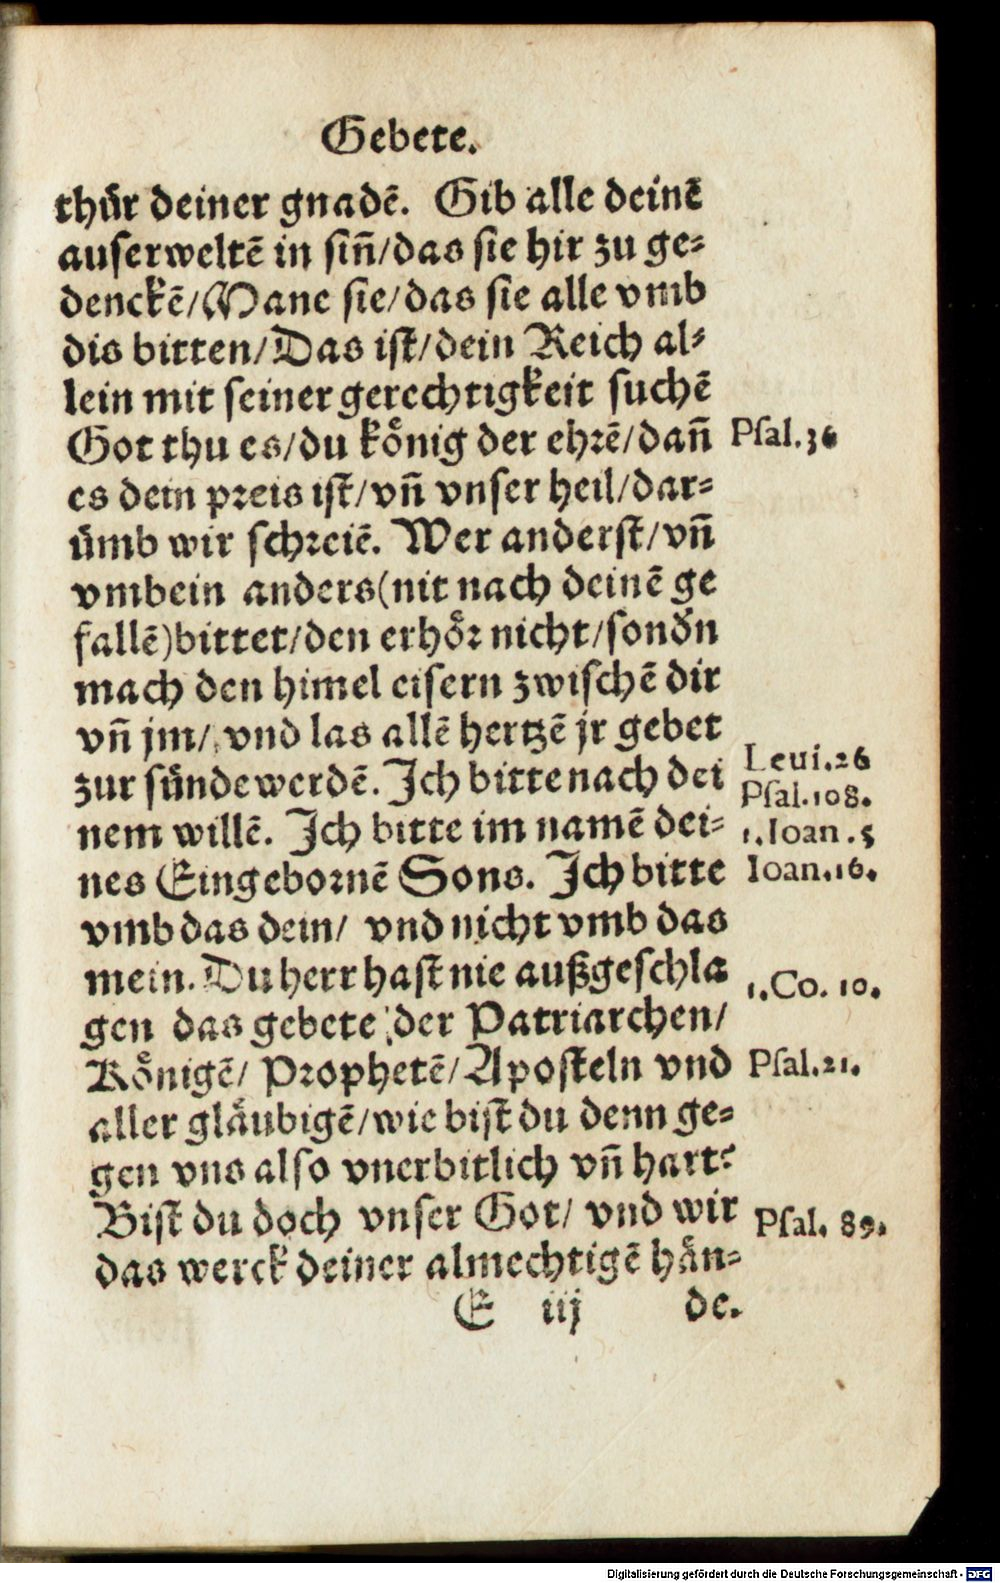 Gebete.
thür deiner gnadẽ. Gib alle deinẽ
auserweltẽ in siñ/das sie hir zu ge⸗
denckẽ/Mane sie/das sie alle vmb
dis bitten/Das ist/dein Reich al⸗
lein mit seiner gerechtigkeit suchẽ
Got thu es/du könig der ehrẽ/dañ Psal.36
es dein preis ist/vñ vnser heil/dar⸗
ümb wir schreiẽ. Wer anderst/vñ
vmbein anders(nit nach deinẽ ge
fallẽ)bittet/den erhör nicht/sondn
mach den himel eisern zwischẽ dir
vñ jm/ vnd las allẽ hertzẽ jr gebet
Leui.26
zur sündewerdẽ. Ich bitte nach dei
Psal.108.
nem willẽ. Ich bitte im namẽ dei⸗ 1.Ioan.5
nes Eingebornẽ Sons. Ich bitte Ioan.16.
vmb das dein/ vnd nicht vmb das
mein. Du herr hast nie außgeschla 1.Co. 10.
gen das gebete der Patriarchen/
Königẽ/ Prophetẽ/Aposteln vnd Psal.21.
aller gläubigẽ/wie bist du denn ge⸗
gen vns also vnerbitlich vñ hart?
Bist du doch vnser Got/ vnd wir Psal. 89.
das werck deiner almechtigẽ hän⸗
E iij de.
Digitalisierung gefördert durch die Deutsche Forschungsgemeinschaft - DFG